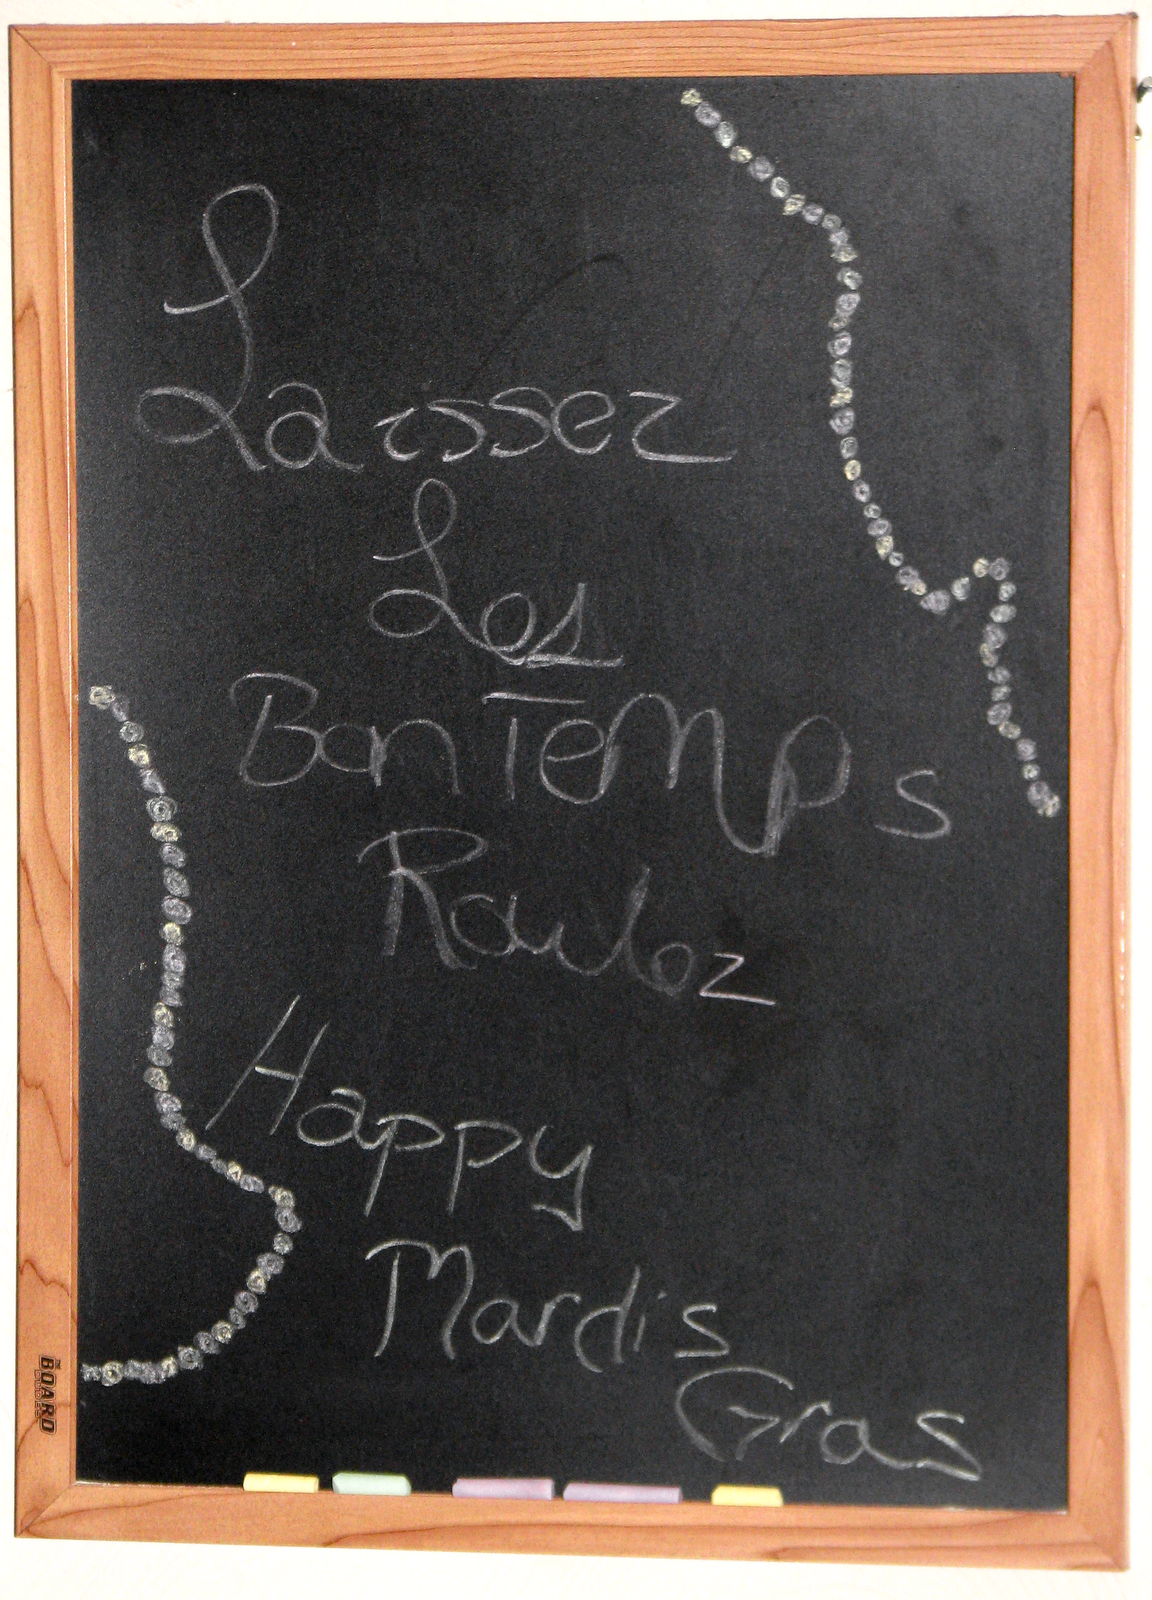 Laissez
Los
Bon Temps
Roulez
Happy
Mardis
Gras
THE BOARD